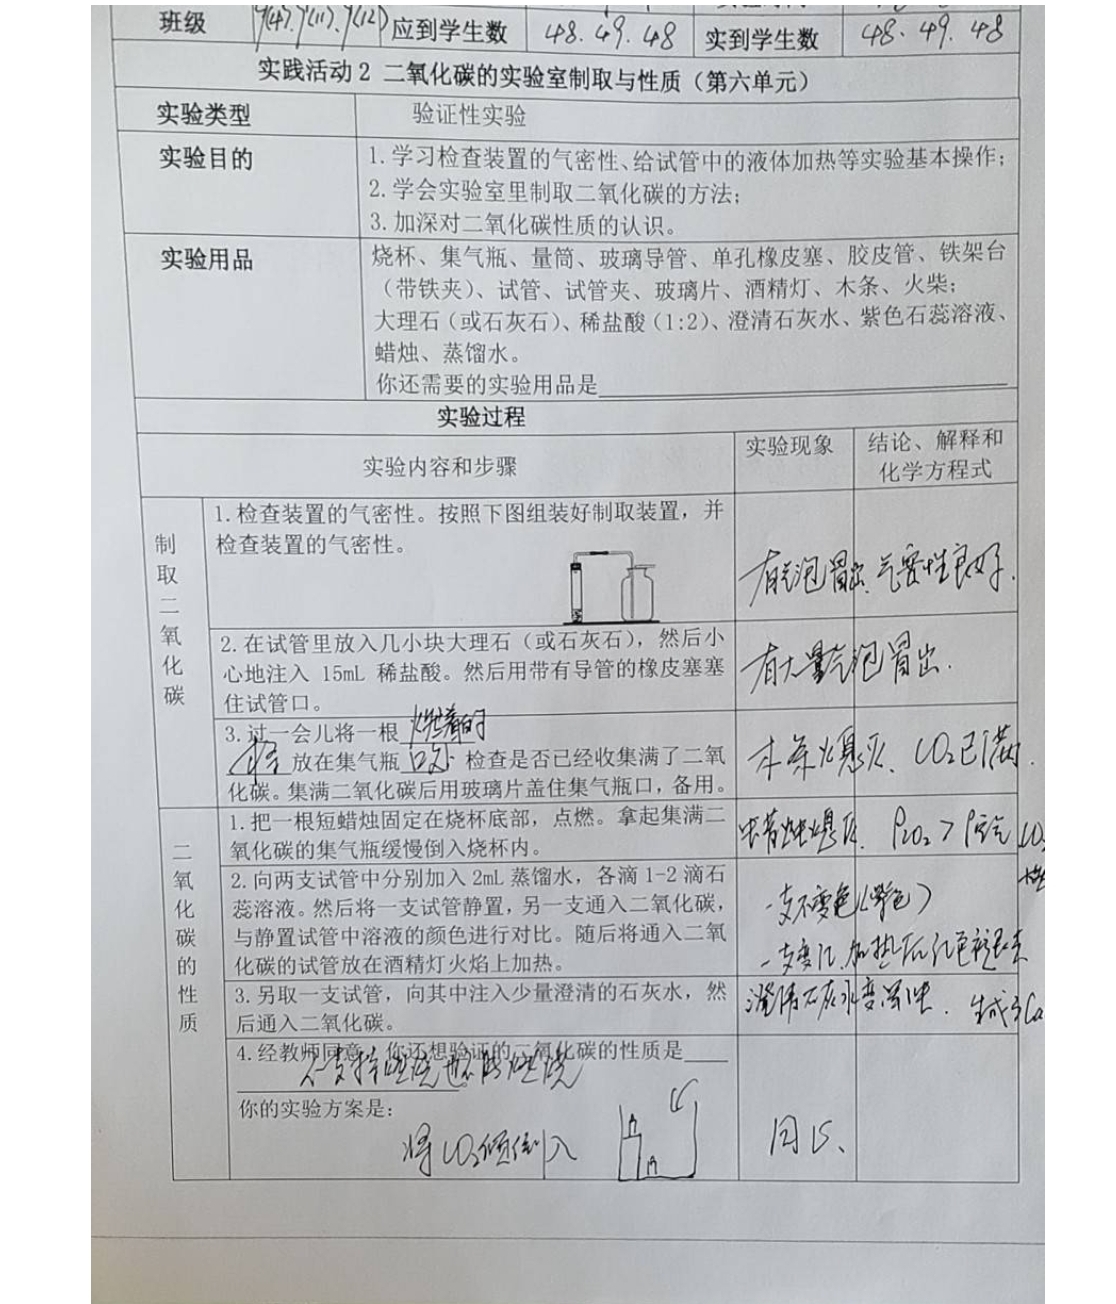 班级 9(4).9(11).9(12) 应到学生数 48.49.48 实到学生数 48.49.48
实践活动2 二氧化碳的实验室制取与性质（第六单元）
实验类型 验证性实验
实验目的 1.学习检查装置的气密性、给试管中的液体加热等实验基本操作；
2.学会实验室里制取二氧化碳的方法；
3.加深对二氧化碳性质的认识。
实验用品 烧杯、集气瓶、量筒、玻璃导管、单孔橡皮塞、胶皮管、铁架台
（带铁夹）、试管、试管夹、玻璃片、酒精灯、木条、火柴；
大理石（或石灰石）、稀盐酸（1:2）、澄清石灰水、紫色石蕊溶液、
蜡烛、蒸馏水。
你还需要的实验用品是
实验过程
实验内容和步骤 实验现象 结论、解释和
化学方程式
制取二氧化碳
1.检查装置的气密性。按照下图组装好制取装置，并
检查装置的气密性。
有气泡冒出 气密性良好.
2.在试管里放入几小块大理石（或石灰石），然后小
心地注入 15mL 稀盐酸。然后用带有导管的橡皮塞塞
住试管口。
有大量气泡冒出.
3.过一会儿将一根 燃着的
放在集气瓶 口处 检查是否已经收集满了二氧
化碳。集满二氧化碳后用玻璃片盖住集气瓶口，备用。
木条熄灭. CO₂已满.
二氧化碳的性质
1.把一根短蜡烛固定在烧杯底部，点燃。拿起集满二
氧化碳的集气瓶缓慢倒入烧杯内。
蜡烛熄灭. ρCO₂ > ρ空气
2.向两支试管中分别加入 2mL 蒸馏水，各滴 1-2 滴石
蕊溶液。然后将一支试管静置，另一支通入二氧化碳，
与静置试管中溶液的颜色进行对比。随后将通入二氧
化碳的试管放在酒精灯火焰上加热。
一支不变色(紫色)
一支变红.加热后红色褪去
3.另取一支试管，向其中注入少量澄清的石灰水，然
后通入二氧化碳。
澄清石灰水变浑浊. 生成了Ca
4.经教师同意，你还想验证的二氧化碳的性质是
不支持燃烧也不能燃烧
你的实验方案是：
将CO₂倾倒入
同上.